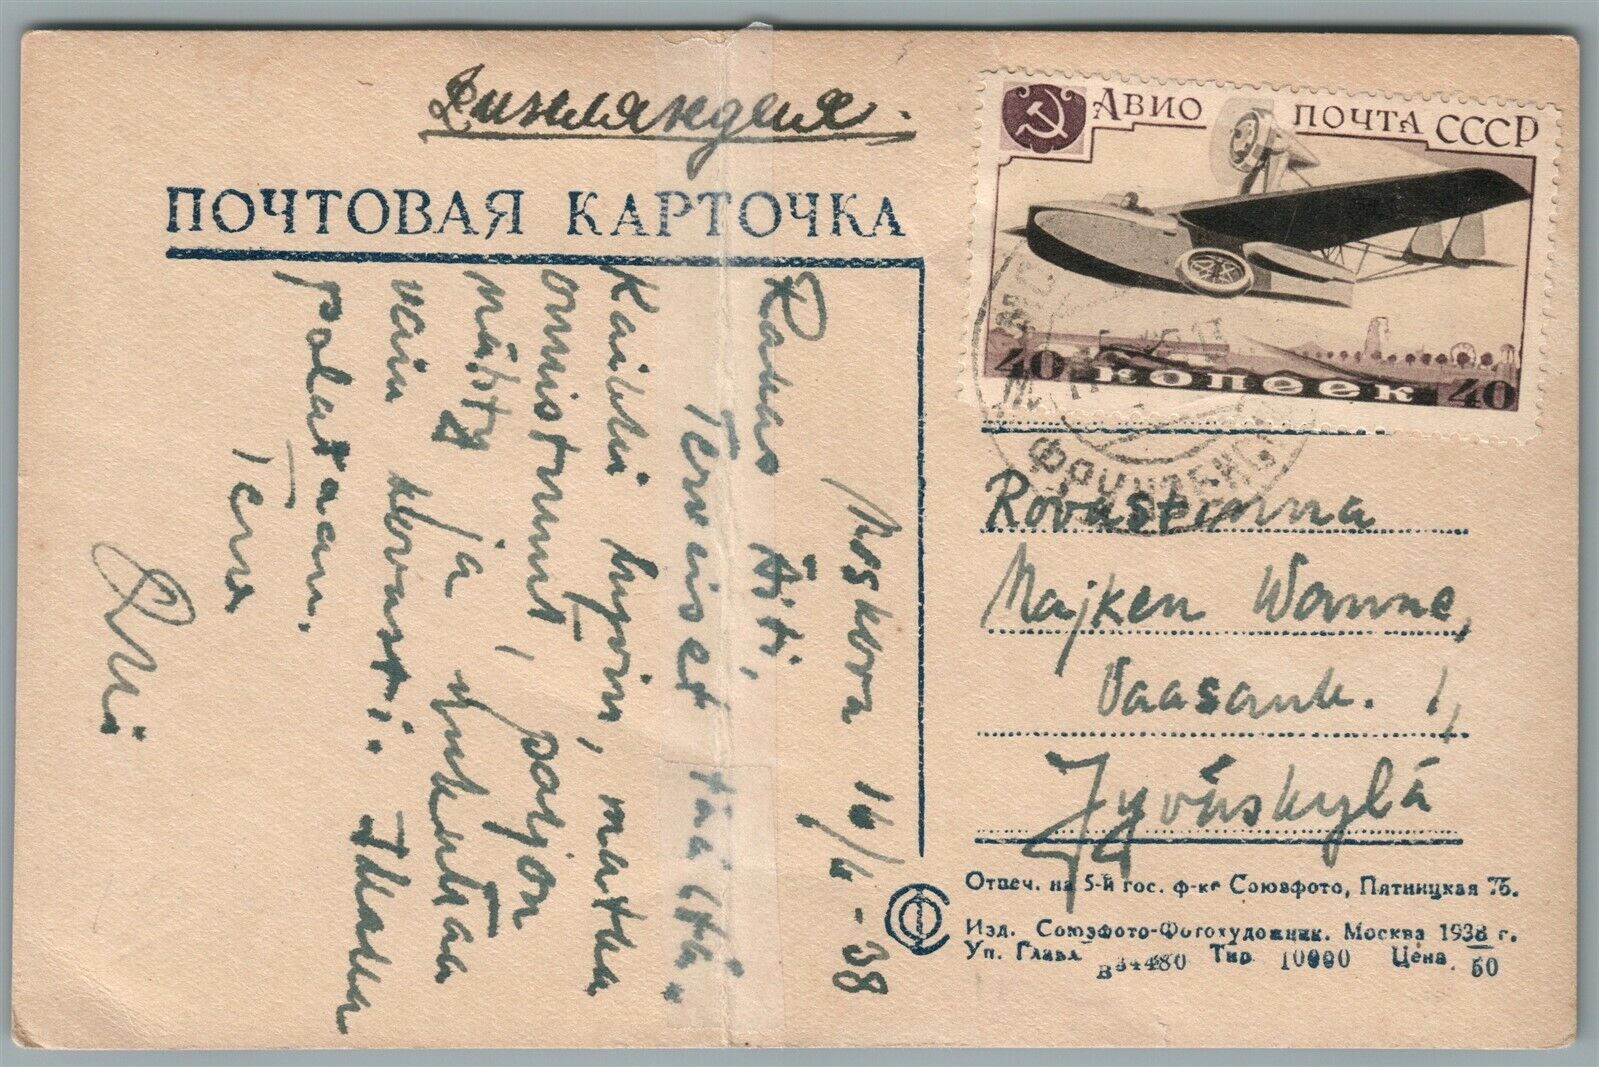 Финляндия.
АВИО ПОЧТА СССР
40 КОПЕЕК 40
ПОЧТОВАЯ КАРТОЧКА
Moskova 16/6 - 38
Rakas Äiti,
Terveiset täältä.
Kaikki hyvin, matka
onnistunut, paljon
nähty ja
vain kovasti.
palataan.
Terv.
Rovastinna
Majken Wanne,
Vaasank. 1,
Jyväskylä
Отпеч. на 5-й гос. ф-ке Союзфото, Пятницкая 75.
Изд. Союзфото-Фотохудожник. Москва 1938 г.
Уп. Главл. В 34480 Тир 10000 Цена 50